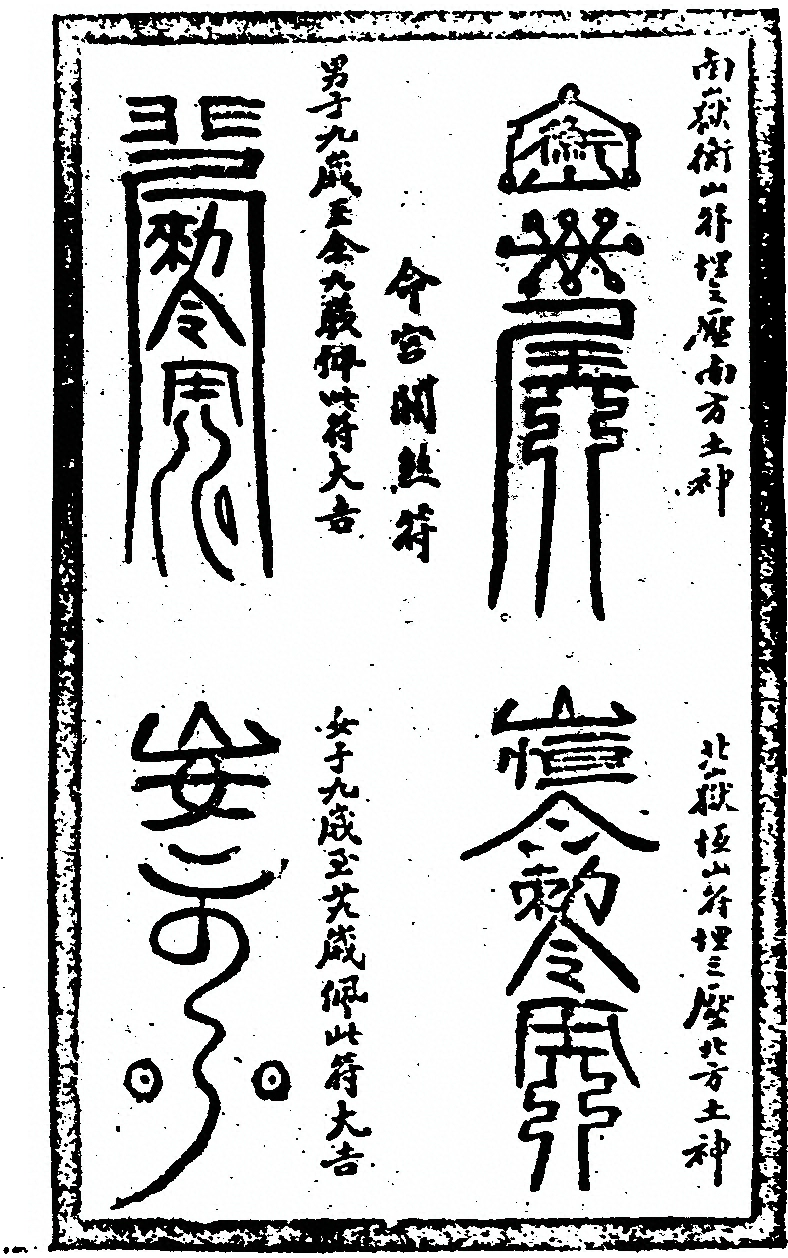 南嶽衡山符埋之壓南方土神
衡
北嶽恆山符埋之壓北方土神
勅令
命宮關煞符
男子九歲至念九歲佩此符大吉
女子九歲至廿九歲佩此符大吉
勅令